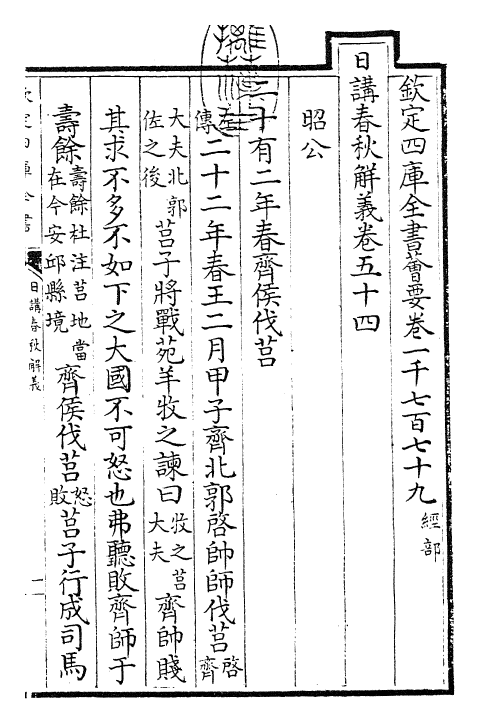 欽定四庫全書薈要卷一千七百七十九經部
日講春秋解義卷五十四
昭公
二十有二年春齊侯伐莒
左傳二十二年春王二月甲子齊北郭啓帥師伐莒啓齊
大夫北郭佐之後莒子將戰苑羊牧之諫曰牧之莒大夫齊帥賤
其求不多不如下之大國不可怒也弗聽敗齊師于
壽餘壽餘杜注莒地當在今安邱縣境齊侯伐莒怒敗莒子行成司馬
日講春秋解義